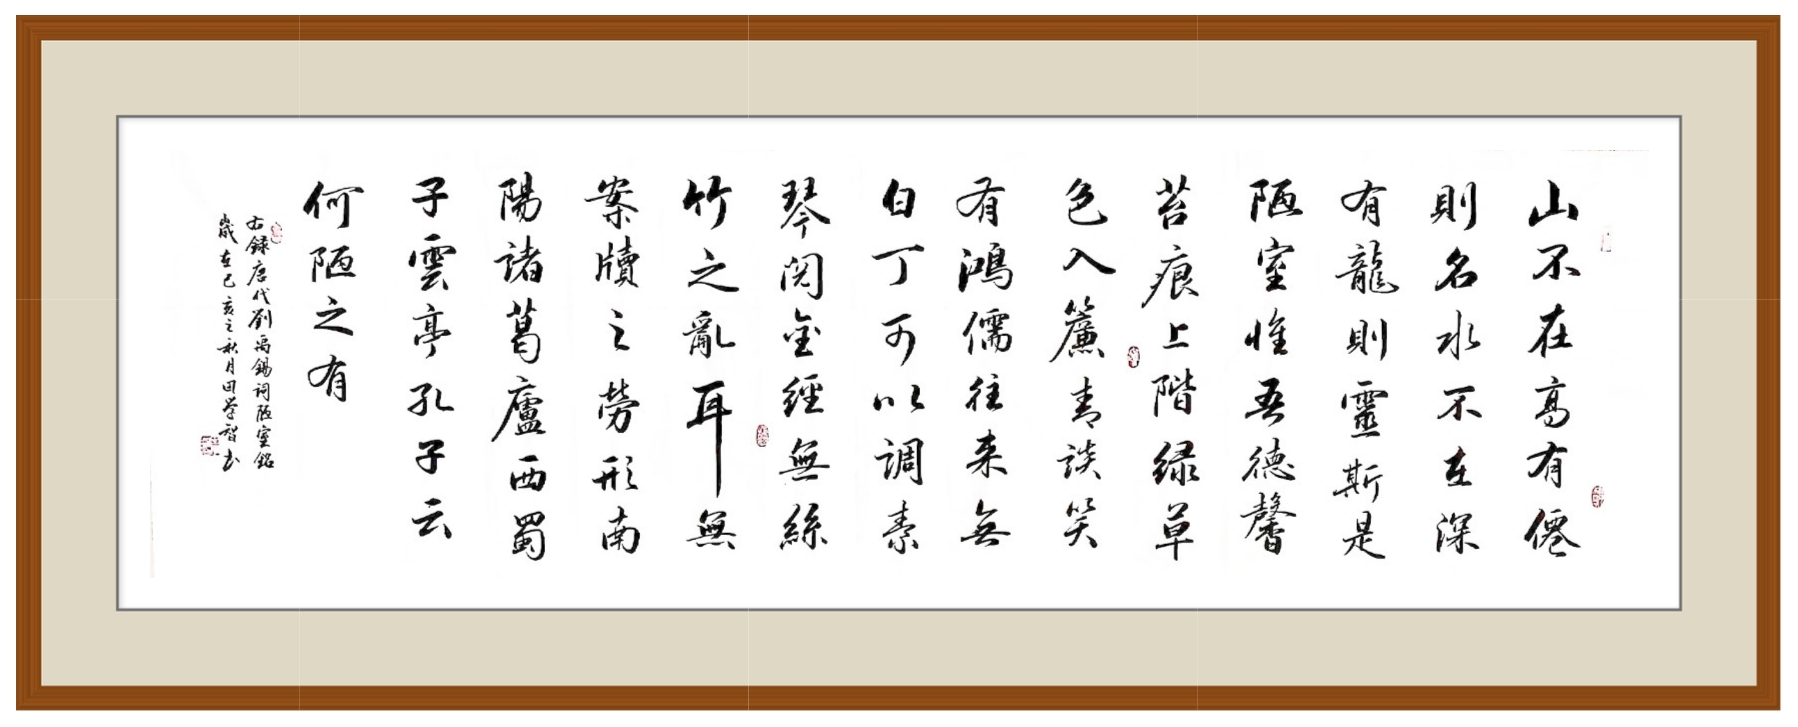 山不在高有僊
則名水不在深
有龍則靈斯是
陋室惟吾德馨
苔痕上階緑草
色入簾青談笑
有鴻儒往来無
白丁可以調素
琴閱金經無絲
竹之亂耳無
案牘之勞形南
陽諸葛廬西蜀
子雲亭孔子云
何陋之有
右録唐代劉禹錫詞陋室銘
歲在己亥之秋月田學智书